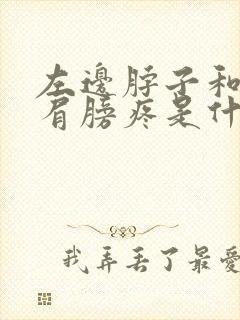 左邊脖子和
肩膀疼是什
我弄丟了最愛